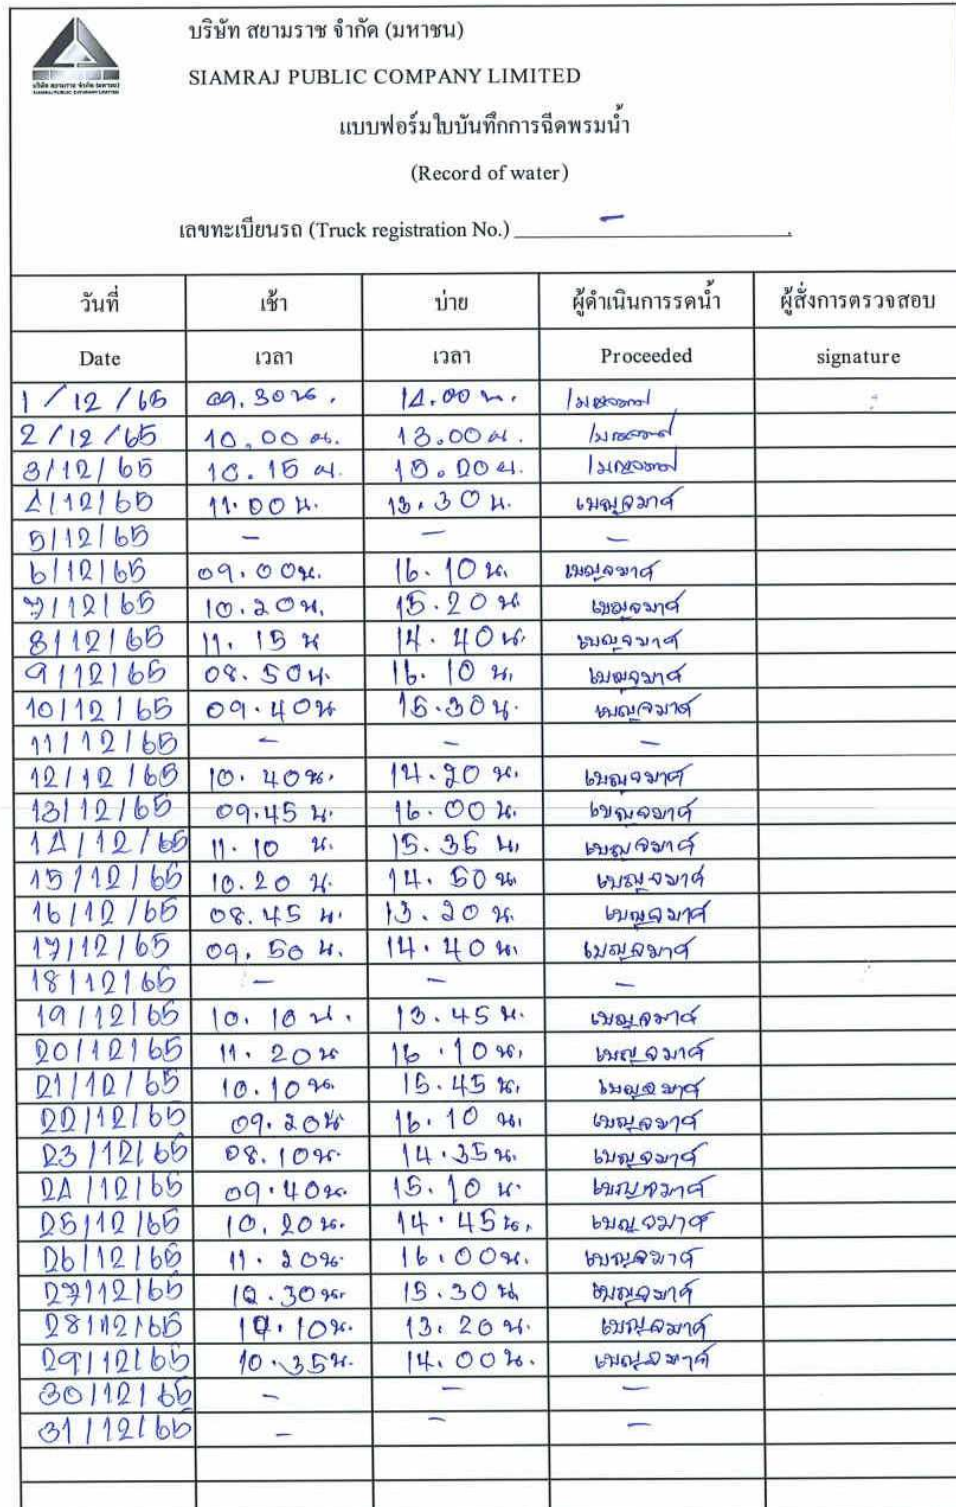 บริษัท สยามราช จำกัด (มหาชน)
SIAMRAJ PUBLIC COMPANY LIMITED
บริษัท สยามราช จำกัด (มหาชน)
SIAMRAJ PUBLIC COMPANY LIMITED
แบบฟอร์มใบบันทึกการฉีดพรมน้ำ
(Record of water)
เลขทะเบียนรถ (Truck registration No.) -
วันที่ เช้า บ่าย ผู้ดำเนินการรดน้ำ ผู้สั่งการตรวจสอบ
Date เวลา เวลา Proceeded signature
1/12/65 09.30น. 14.00น. เบญจมาศ
2/12/65 10.00น. 13.00น. เบญจมาศ
3/12/65 10.15น. 15.20น. เบญจมาศ
4/12/65 11.00น. 13.30น. เบญจมาศ
5/12/65 - - -
6/12/65 09.00น. 16.10น. เบญจมาศ
7/12/65 10.20น. 15.20น เบญจมาศ
8/12/65 11.15น 14.40น. เบญจมาศ
9/12/65 08.50น. 16.10น. เบญจมาศ
10/12/65 09.40น 15.30น. เบญจมาศ
11/12/65 - - -
12/12/65 10.40น. 14.20น. เบญจมาศ
13/12/65 09.45น. 16.00น. เบญจมาศ
14/12/65 11.10น. 15.35น. เบญจมาศ
15/12/65 10.20น. 14.50น. เบญจมาศ
16/12/65 08.45น. 13.20น. เบญจมาศ
17/12/65 09.50น. 14.40น. เบญจมาศ
18/12/65 - - -
19/12/65 10.10น. 13.45น. เบญจมาศ
20/12/65 11.20น 16.10น. เบญจมาศ
21/12/65 10.10น. 15.45น. เบญจมาศ
22/12/65 09.20น 16.10น. เบญจมาศ
23/12/65 08.10น. 14.35น. เบญจมาศ
24/12/65 09.40น. 15.10น. เบญจมาศ
25/12/65 10.20น. 14.45น. เบญจมาศ
26/12/65 11.20น. 16.00น. เบญจมาศ
27/12/65 10.30น. 15.30น. เบญจมาศ
28/12/65 13.20น. เบญจมาศ
29/12/65 10.35น. 14.00น. เบญจมาศ
30/12/65 - - -
31/12/65 - - -